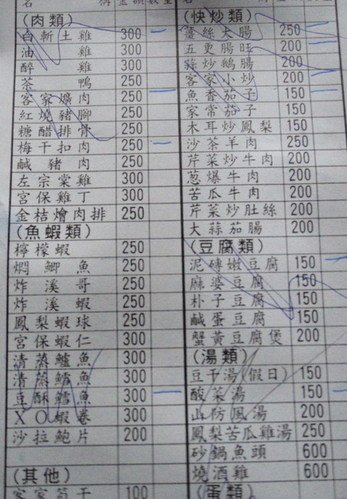 (肉類)
白斬土雞 300
油雞 300
醉雞 300
茶鴨 250
客家爌肉 250
紅燒豬腳 250
糖醋排骨 250
梅干扣肉 250
鹹豬肉 250
左宗棠雞 250
宮保雞丁 250
金桔燴肉排 250
(魚蝦類)
檸檬蝦 250
燜鯽魚 250
炸溪哥 250
炸溪蝦 250
鳳梨蝦球 250
宮保蝦仁 300
清蒸鱸魚 300
清蒸鱈魚 300
豆酥鱈魚 300
XO蝦卷 300
沙拉鮑片 200
(其他)
客家 100
(快炒類)
薑絲大腸 250
五更腸旺 200
炒鵝腸 200
客家小炒 200
魚香茄子 150
家常茄子 150
木耳炒鳳梨 150
沙茶羊肉 250
芹菜炒牛肉 200
蔥爆牛肉 200
苦瓜牛肉 200
芹菜炒肚絲 200
大蒜茄腸 200
(豆腐類)
泥磚嫩豆腐 150
麻婆豆腐 150
朴子豆腐 150
鹹蛋豆腐 150
蟹黃豆腐煲 200
(湯類)
豆干湯(假日) 150
酸菜湯 150
湯 200
鳳梨苦瓜雞湯 250
砂鍋魚頭 600
燒酒雞 600
(蛋類)